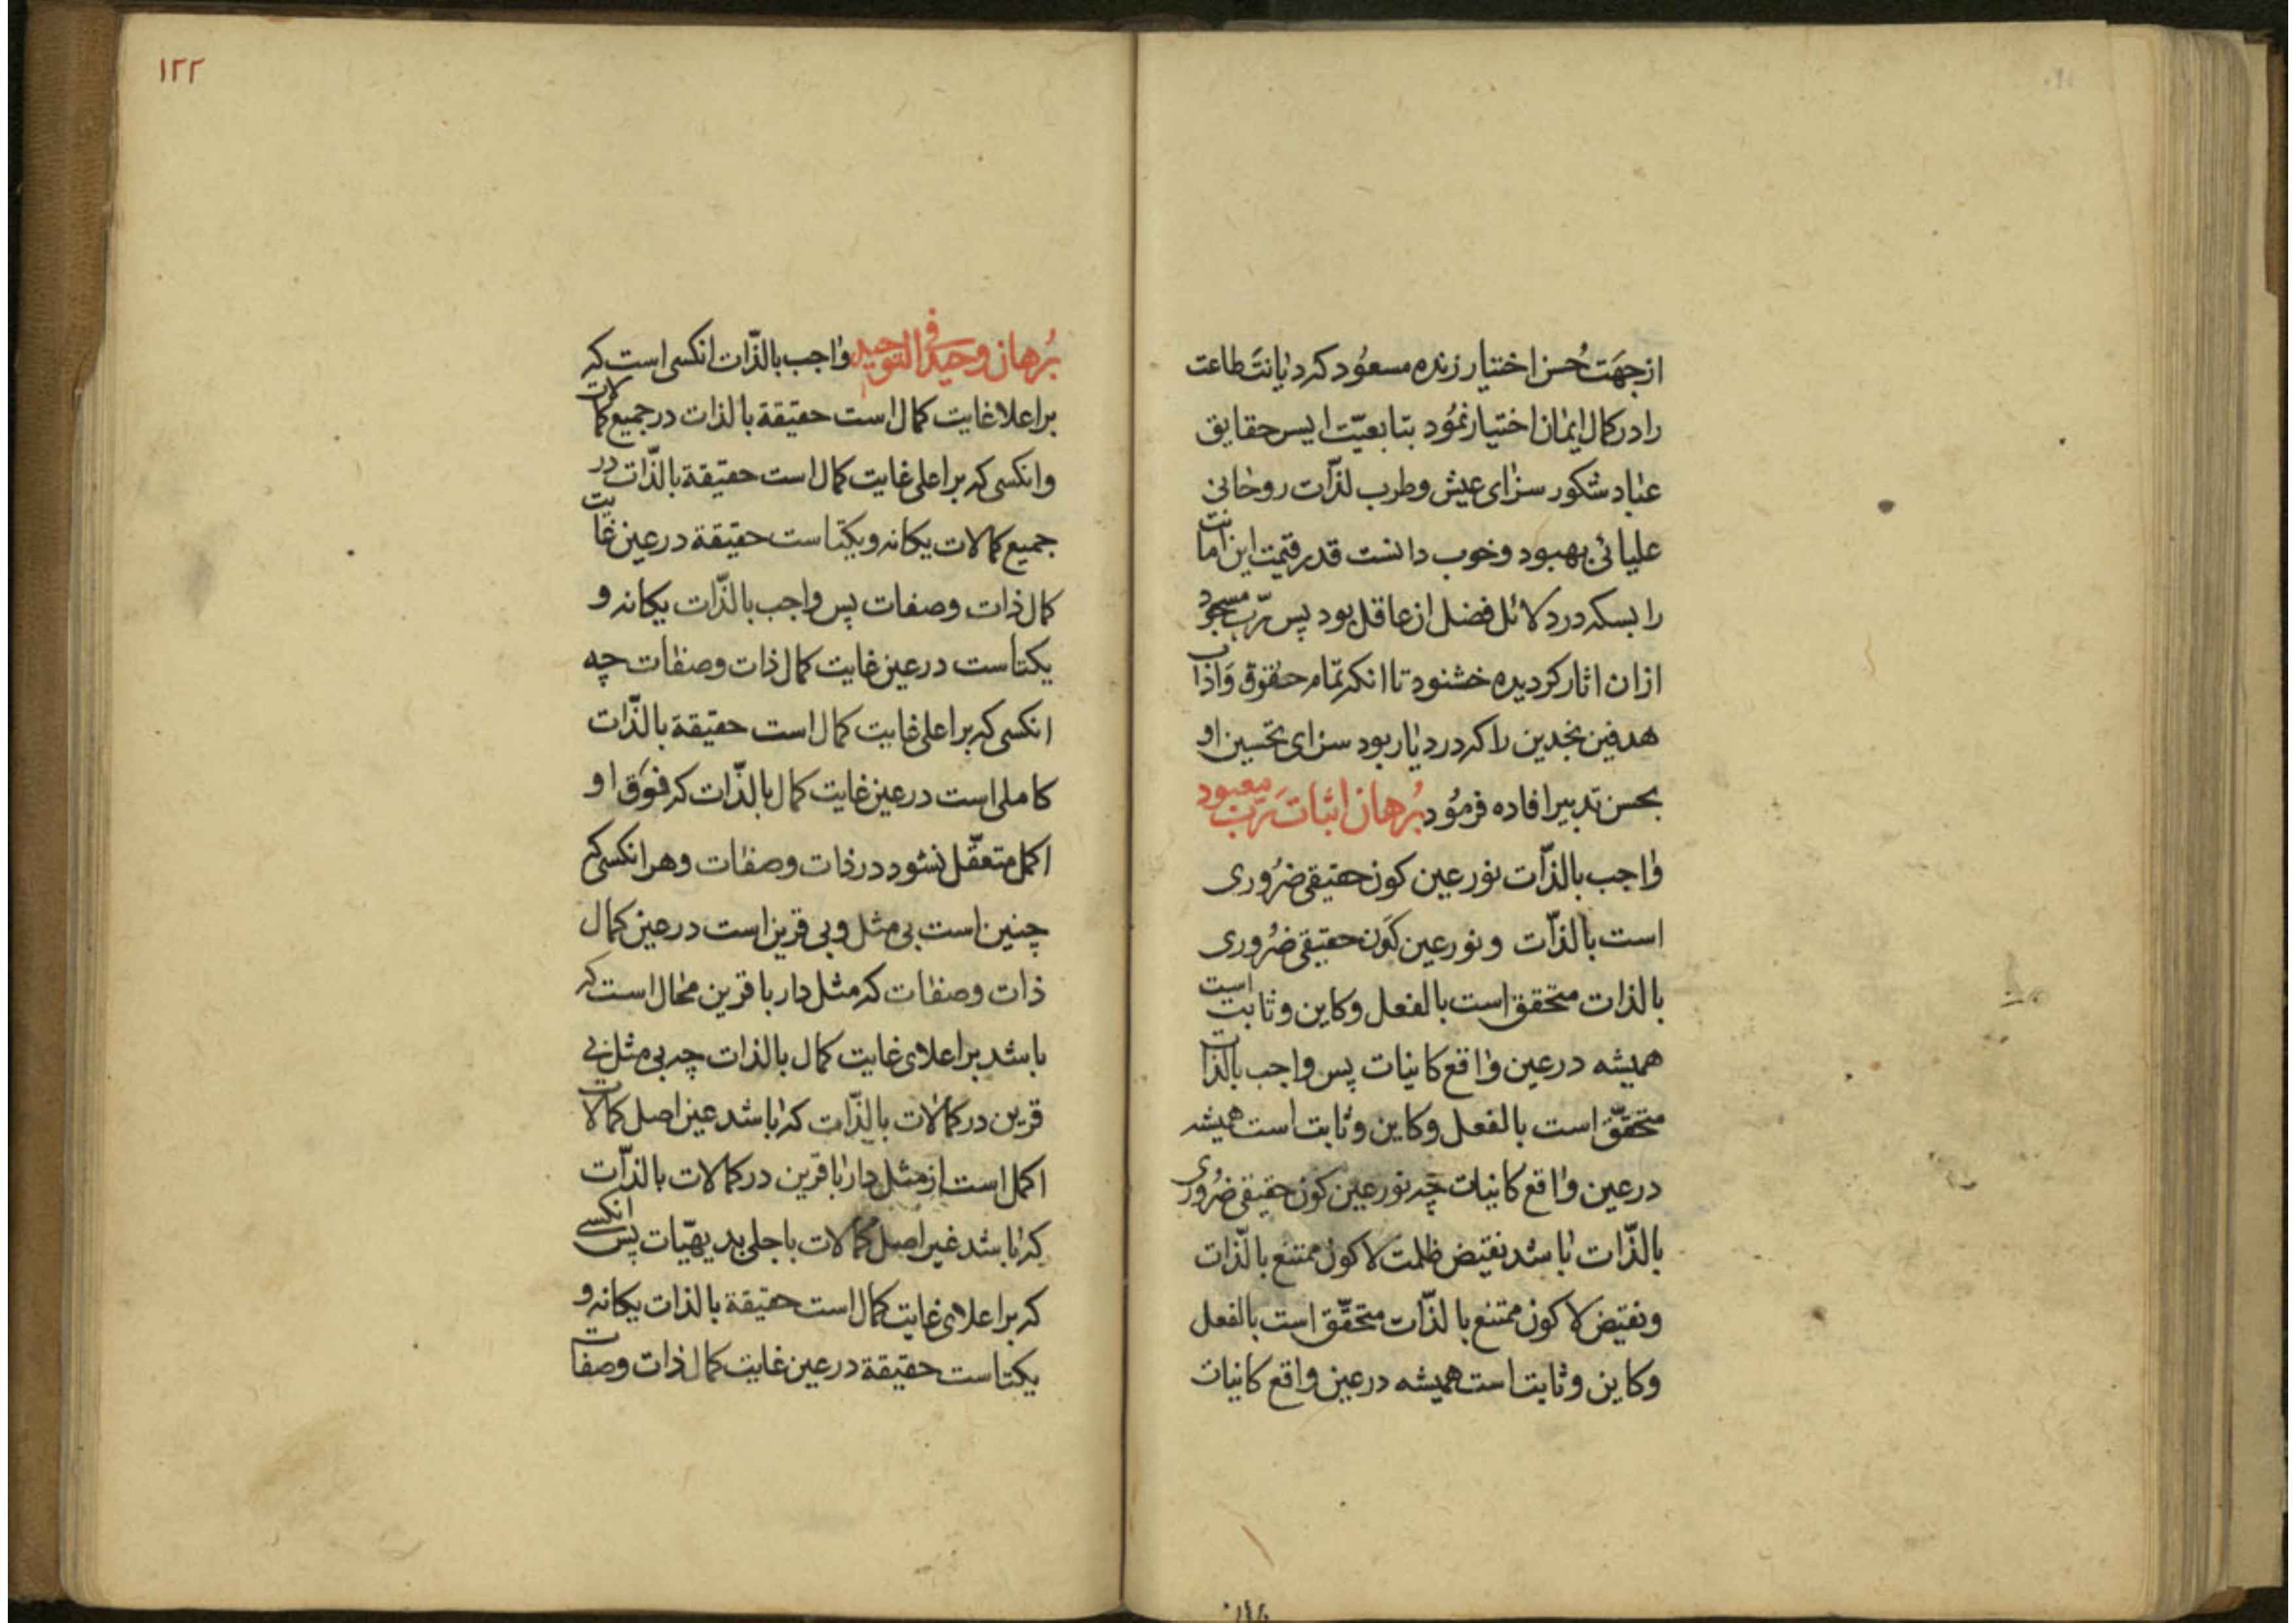 از جهَت حُسن اختیار زنده مسعُود که دیانت طاعت
را در کمال ایمان اختیار نمُود بتابعیّت ایس حقایق
عباد شکور سزای عیش و طرب لذّات روحانی
علیائی بهبود و خوب دانست قدر قیمت این امانت
را بسکه در دلائل فضل از عاقل بود پس ربّ مسجود
ازان اثار کردیده خشنود تا انکه تمام حقوق وَاذاب
هدفین نجدین را که در دیار بود سزای تحسین او
بحسن تدبیر افاده فرمُود بُرهان اثبات رَبّ معبود
واجب بالذّات نور عین کون حقیقی ضرُوری
است بالذّات و نور عین کَون حقیقی ضرُوری
بالذات متحقق است بالفعل و کاین و ثابت است
همیشه در عین واقع کانیات پس واجب بالذات
متحقّق است بالفعل و کاین و ثابت است همیشه
در عین واقع کانیات چه نور عین کون حقیقی ضرُوری
بالذّات باشد نقیض ظلمت لا کون ممتنع بالذّات
و نقیض لا کون ممتنع بالذّات متحقّق است بالفعل
و کاین و ثابت است همیشه در عین واقع کانیات
١٢٢
بُرهان وحید فی التوحید واجب بالذّات انکسی است که
بر اعلا غایت کمال است حقیقة بالذات در جمیع کمالات
و انکسی که بر اعلی غایت کمال است حقیقة بالذّات در
جمیع کمالات یکانه و یکتاست حقیقة در عین غایت
کمال ذات و صفات پس واجب بالذّات یکانه و
یکتاست در عین غایت کمال ذات و صفات چه
انکسی که بر اعلی غایت کمال است حقیقة بالذّات
کاملی است در عین غایت کمال بالذّات که فوَق او
اکمل متعقّل نشود در ذات و صفات و هر انکسی که
چنین است بی مثل و بی قرین است در عین کمال
ذات و صفات که مثل دار با قرین محال است که
باشد بر اعلای غایت کمال بالذات چه بی مثل بی
قرین در کمالات بالذّات که باشد عین اصل کمالات
اکمل است از مثل دار با قرین در کمالات بالذّات
که باشد غیر اصل کمالات با جلی بدیهیّات پس انکسی
که بر اعلای غایت کمال است حقیقة بالذات یکانه و
یکتاست حقیقة در عین غایت کمال ذات و صفات